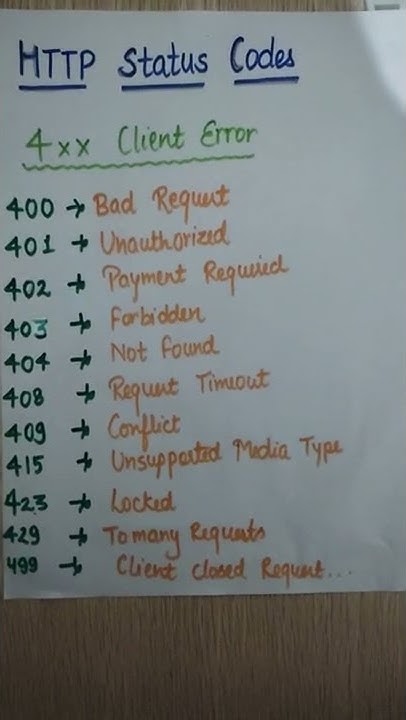 HTTP Status Codes
4xx Client Error
400 → Bad Request
401 → Unauthorized
402 → Payment Required
403 → Forbidden
404 → Not Found
408 → Request Timeout
409 → Conflict
415 → Unsupported Media Type
423 → Locked
429 → To many Requests
499 → Client closed Request...